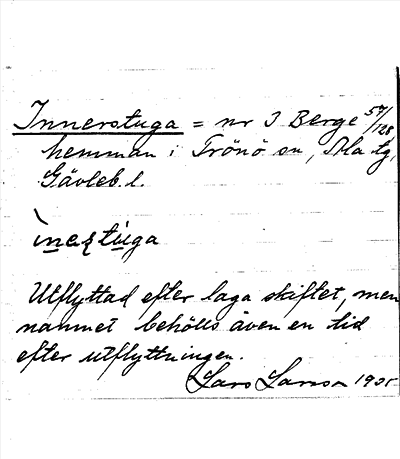 Innerstuga = nr 3 Berge 57/128
hemman i Trönö sn, Ala tg,
Gävleb. l.
ìnerstuga
Utflyttad efter laga skiftet, men
namnet behölls även en tid
efter utflyttningen.
Lars Larsson 1935